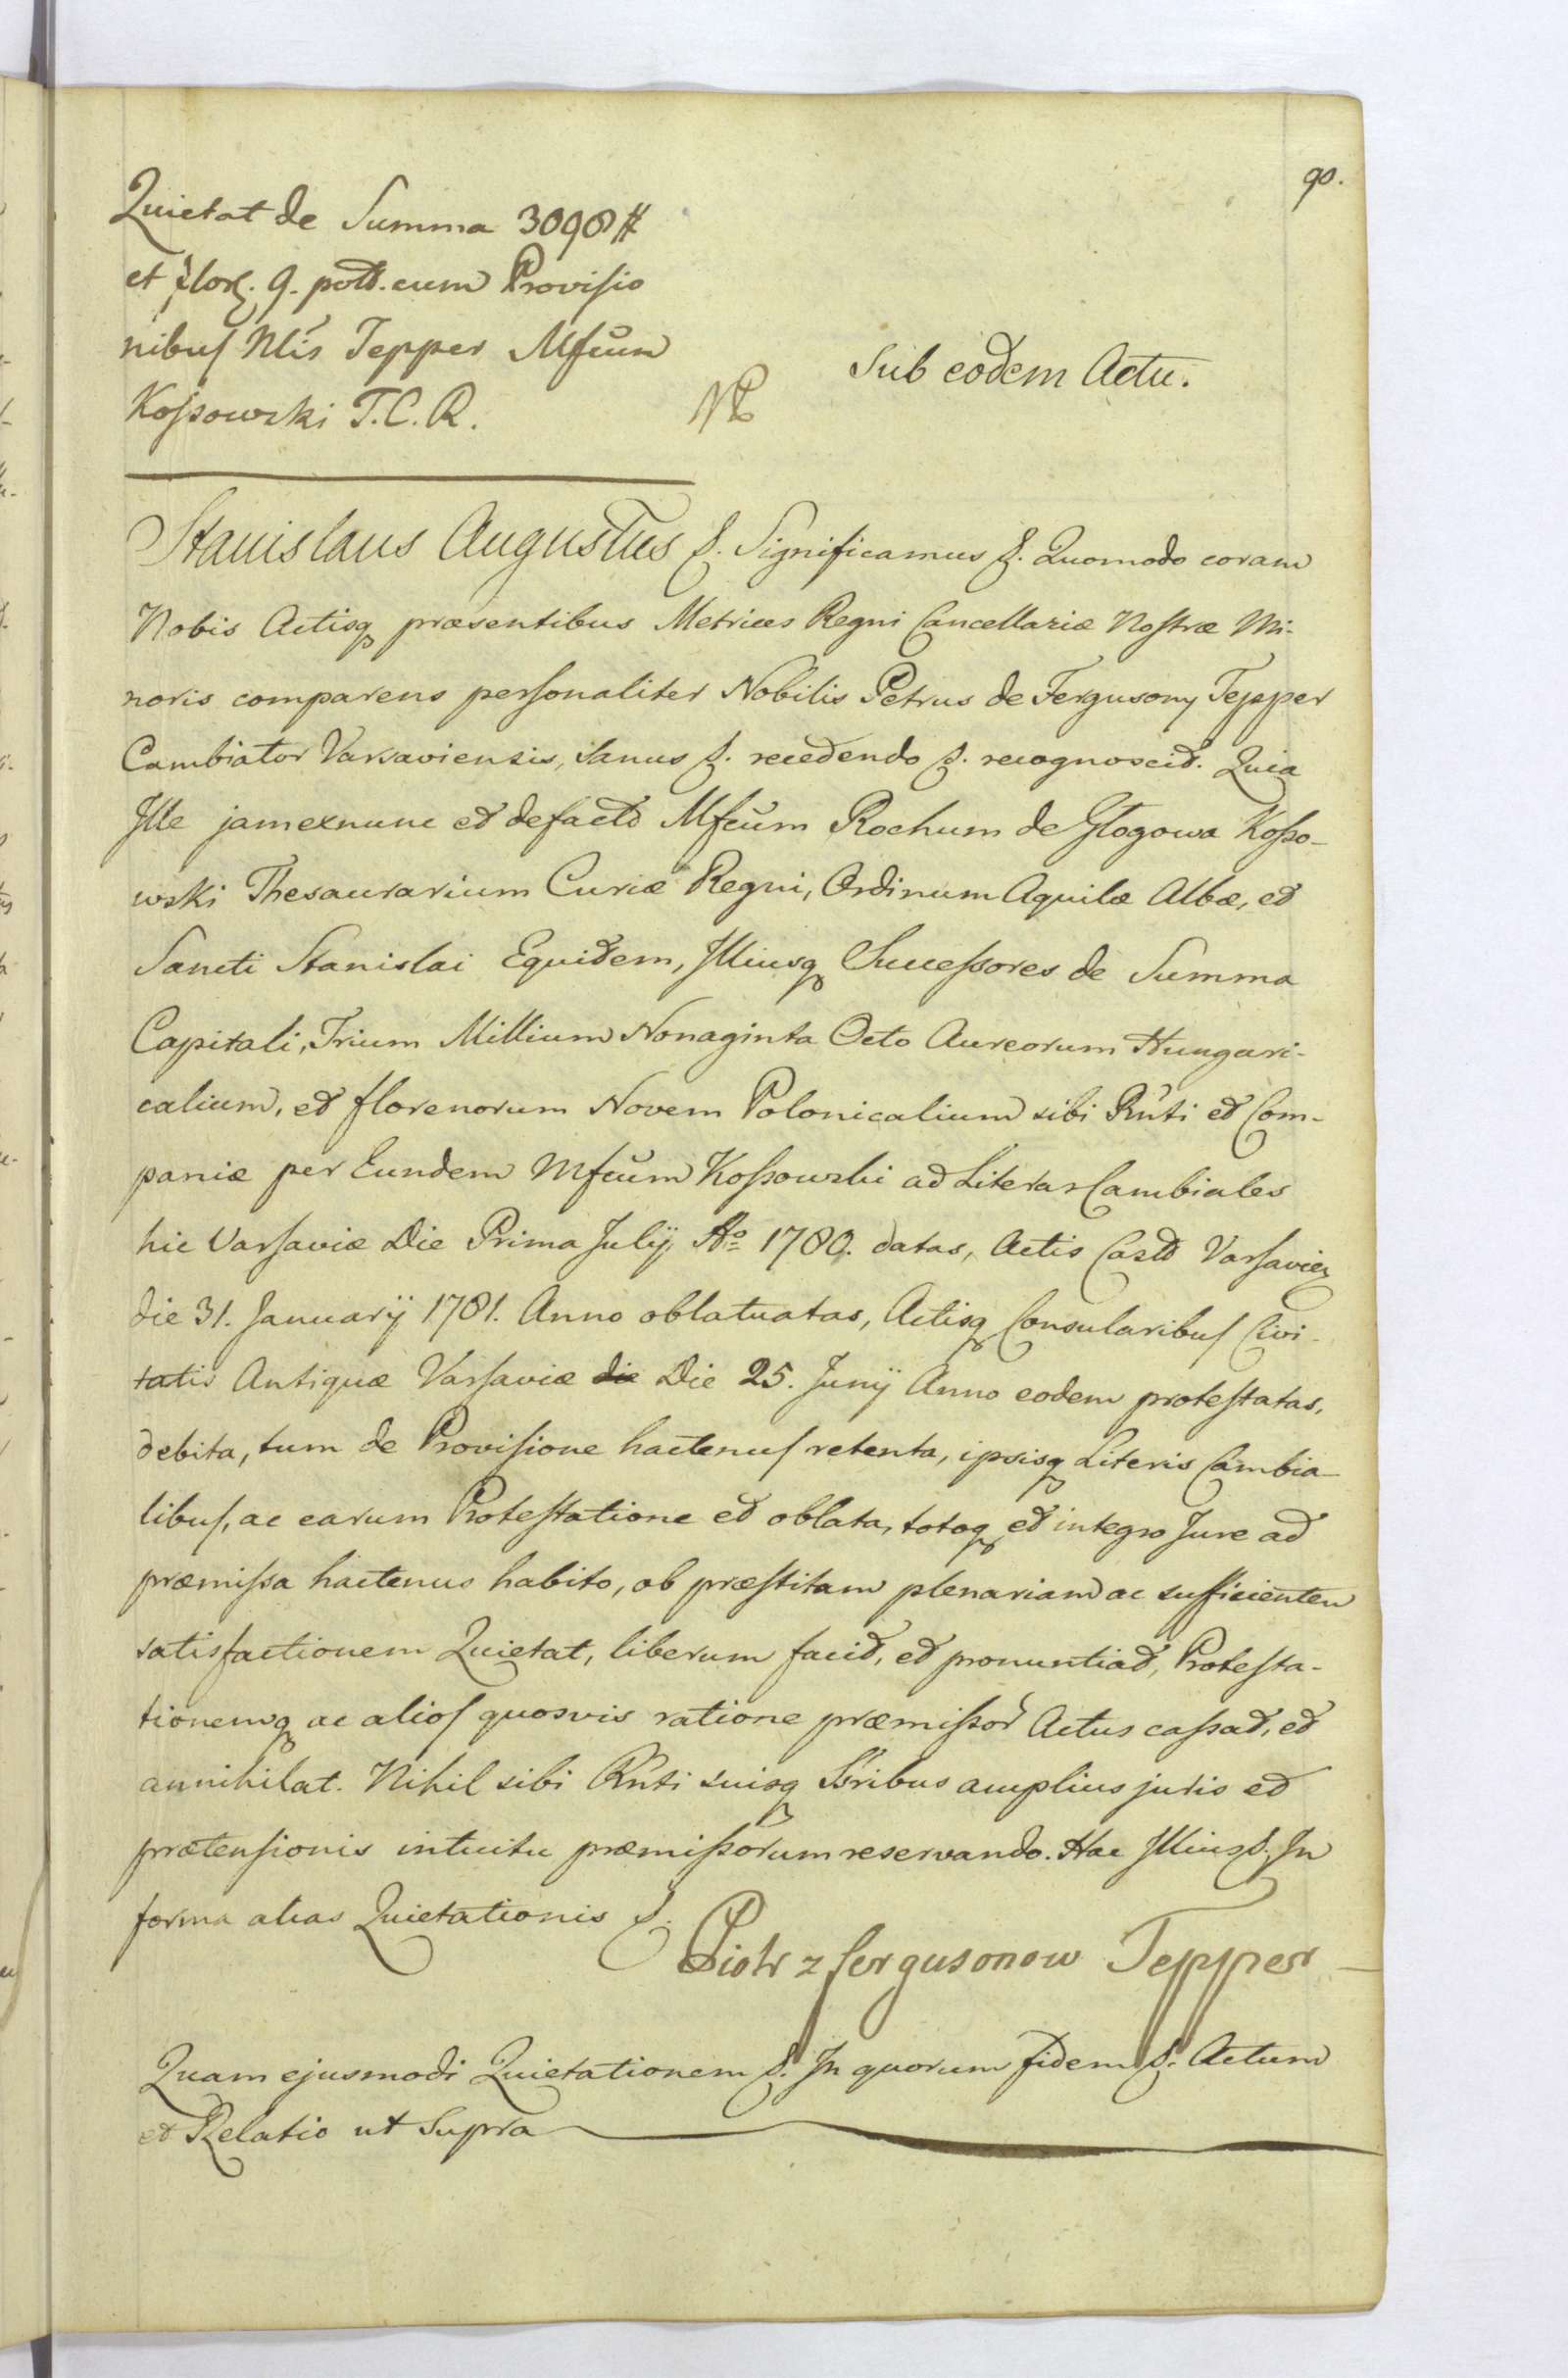 90.
Quietat de Summa 3098 #
et flor. 9. poll. cum Provisio
nibus Nlis Tepper Mfcum
Kossowski T.C.R.
Sub eodem Actu.
Stanislaus Augustus &. Significamus &. Quomodo coram
Nobis Actisq præsentibus Metrices Regni Cancellariæ Nostræ Mi-
noris comparens personaliter Nobilis Petrus de Fergusony Tepper
Cambiator Varsaviensis, sanus &. recedendo &. recognoscit. Quia
Ille jamexnunc et defacto Mfcum Rochum de Glogowa Kosso-
wski Thesaurarium Curiæ Regni, Ordinum Aquilæ Albæ, et
Sancti Stanislai Equidem, Illiusq Successores de Summa
Capitali, Trium Millium Nonaginta Octo Aureorum Hungari-
calium, et florenorum Novem Polonicalium sibi Rnti et Com-
paniæ per Eundem Mfcum Kossowski ad Literas Cambiales
hic Varsaviæ Die Prima Julij Ao 1780. datas, Actis Castr Varsavien
die 31. Januarij 1781. Anno oblatuatas, Actisq Consularibus Civi-
tatis Antiquæ Varsaviæ die Die 25. Junij Anno eodem protestatas,
debita, tum de Provisione hactenus retenta, ipsisq Literis Cambia-
libus, ac earum Protestatione et oblata, totoq et integro Jure ad
præmissa hactenus habito, ob præstitam plenariam ac sufficientem
satisfactionem Quietat, liberum facit, et pronuntiat, Protesta-
tionemq ac alios quosvis ratione præmissor Actus cassat, et
annihilat. Nihil sibi Rnti suisq Ssribus amplius juris et
prætensionis intuitu præmissorum reservando. Hac Illius &. In
forma alias Quietationis &.
Piotr z fergusonow Tepper
Quam ejusmodi Quietationem &. In quorum fidem &. Actum
et Relatio ut Supra